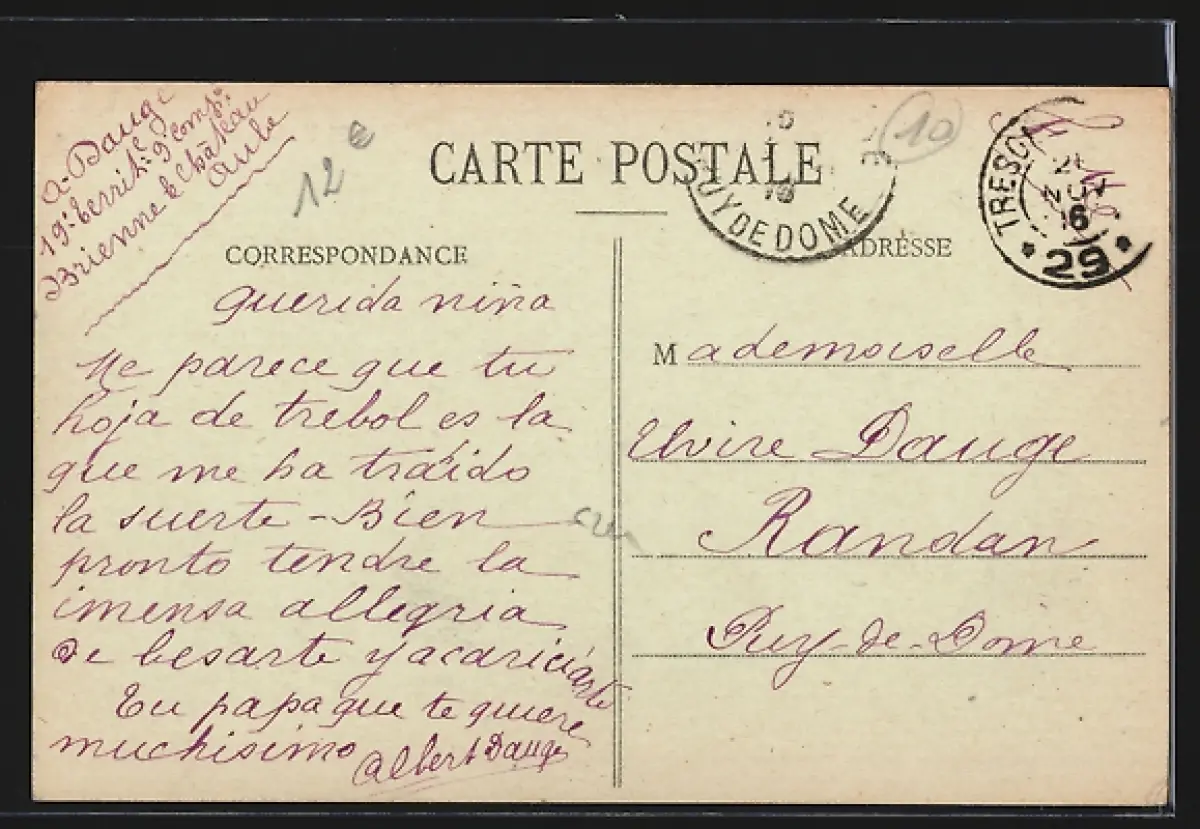 A. Dauge
19e territ. 9e compi.
Brienne le Château
Aube
12 e
10
CARTE POSTALE
PUY DE DOME
TRESOR
NOV
16
* 29 *
CORRESPONDANCE
ADRESSE
Querida niña
Me parece que tu
hoja de trebol es la
que me ha traído
la suerte - Bien
pronto tendre la
imensa allegria
de besarte y acariciarte
Tu papa que te quiere
muchisimo Albert Dauge
Mademoiselle
Elvire Dauge
Randan
Puy-de-Dome